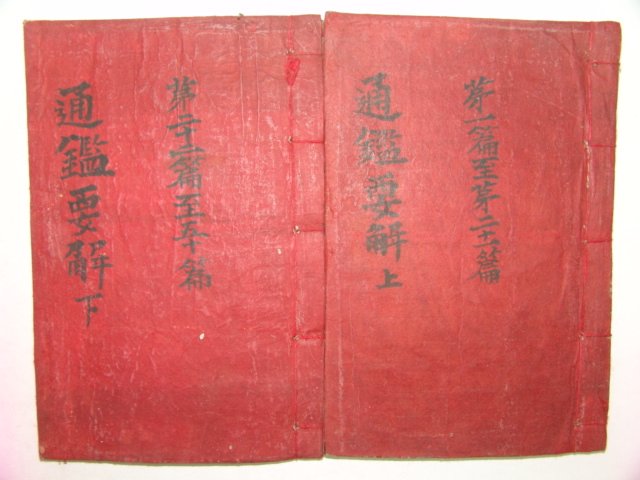 苐一篇至苐二十一篇
通鑑要解 上
第二十二篇至五十篇
通鑑要解 下